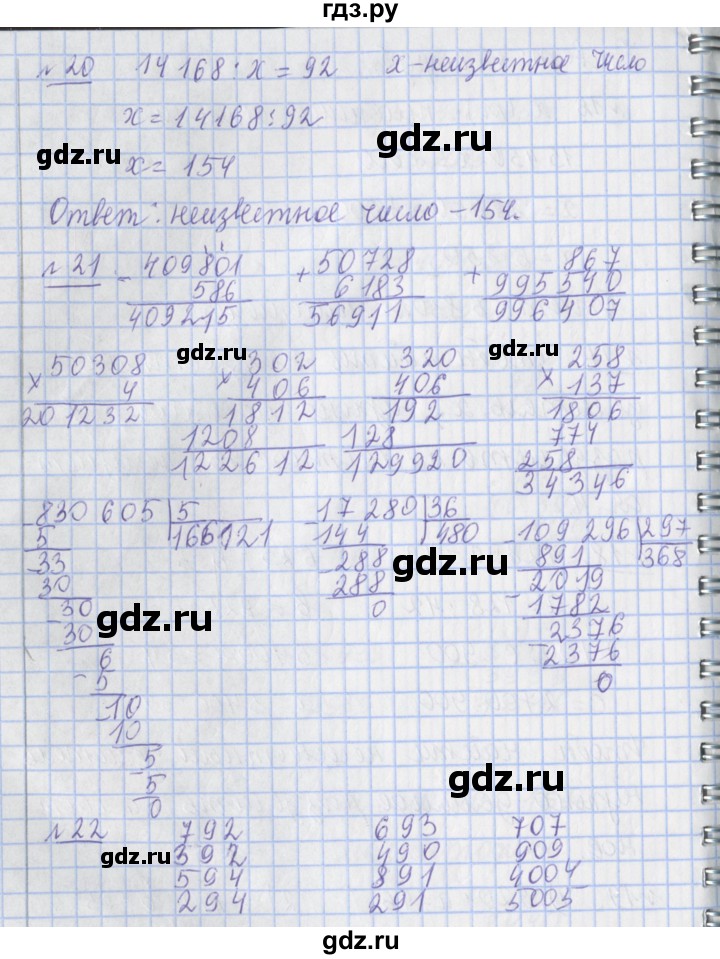 гдз.ру
№20 14168:x=92 x-неизвестное число
x=14168:92
gdz.ru
gdz.ru
x=154
Ответ: неизвестное число-154.
№21 -409801 +50728 +867
586 6183 995540
409215 56911 996407
gdz.ru
gdz.ru
x50308 x302 320 x258
4 406 406 137
201232 1812 192 1806
1208 128 774
122612 129920 258
34346
-830605 5 -17280 36
5 166121 144 480 -109296 297
-33 -288 891 368
gdz.ru
30 288 2019
-30 0 -1782
gdz.ru
30 2376
6 -2376
-5 0
-10
10
-5
5
gdz.ru
0
№22 792 693 707
gdz.ru
392 490 909
594 891 4004
294 291 5005
gdz.ru